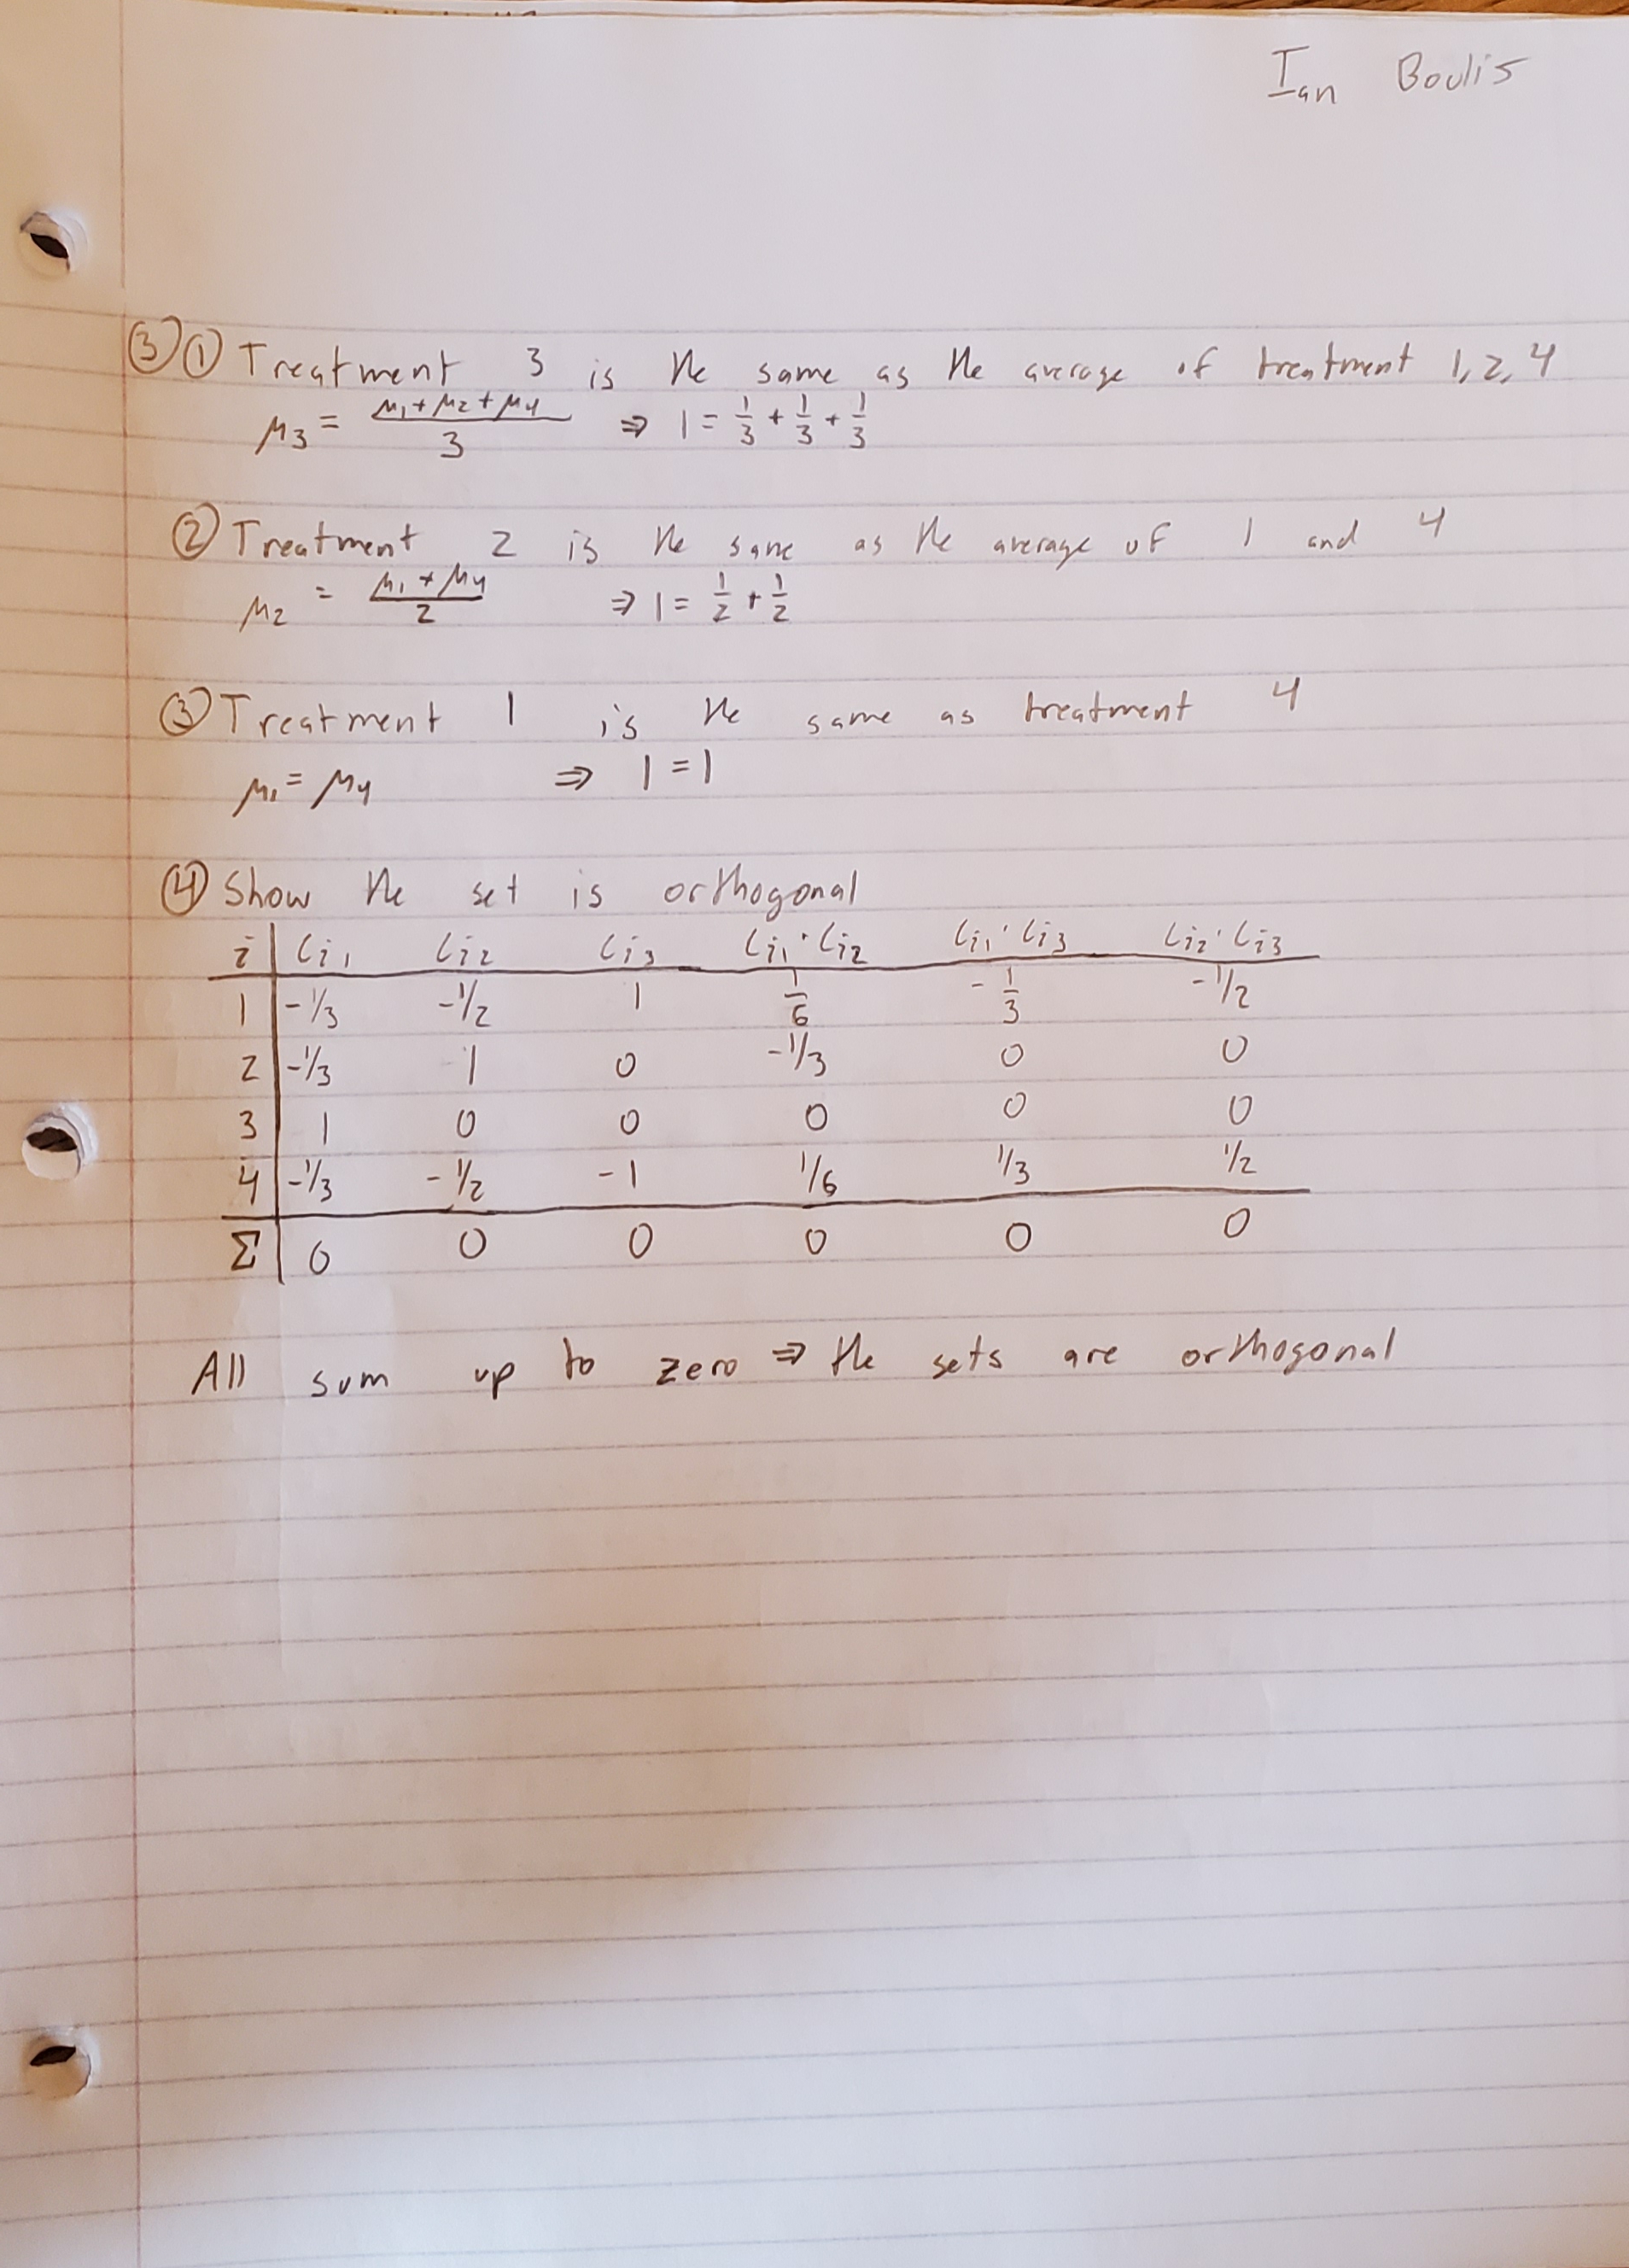 Ian Boulis
③① Treatment 3 is the same as the average of treatment 1, 2, 4
μ₃ = (μ₁ + μ₂ + μ₄)/3 ⇒ 1 = 1/3 + 1/3 + 1/3
② Treatment 2 is the same as the average of 1 and 4
μ₂ = (μ₁ + μ₄)/2 ⇒ 1 = 1/2 + 1/2
③ Treatment 1 is the same as treatment 4
μ₁ = μ₄ ⇒ 1 = 1
④ Show the set is orthogonal
i | Ci₁ Ci₂ Ci₃ Ci₁·Ci₂ Ci₁·Ci₃ Ci₂·Ci₃
1 | -1/3 -1/2 1 1/6 -1/3 -1/2
2 | -1/3 1 0 -1/3 0 0
3 | 1 0 0 0 0 0
4 | -1/3 -1/2 -1 1/6 1/3 1/2
Σ | 0 0 0 0 0 0
All sum up to zero ⇒ the sets are orthogonal